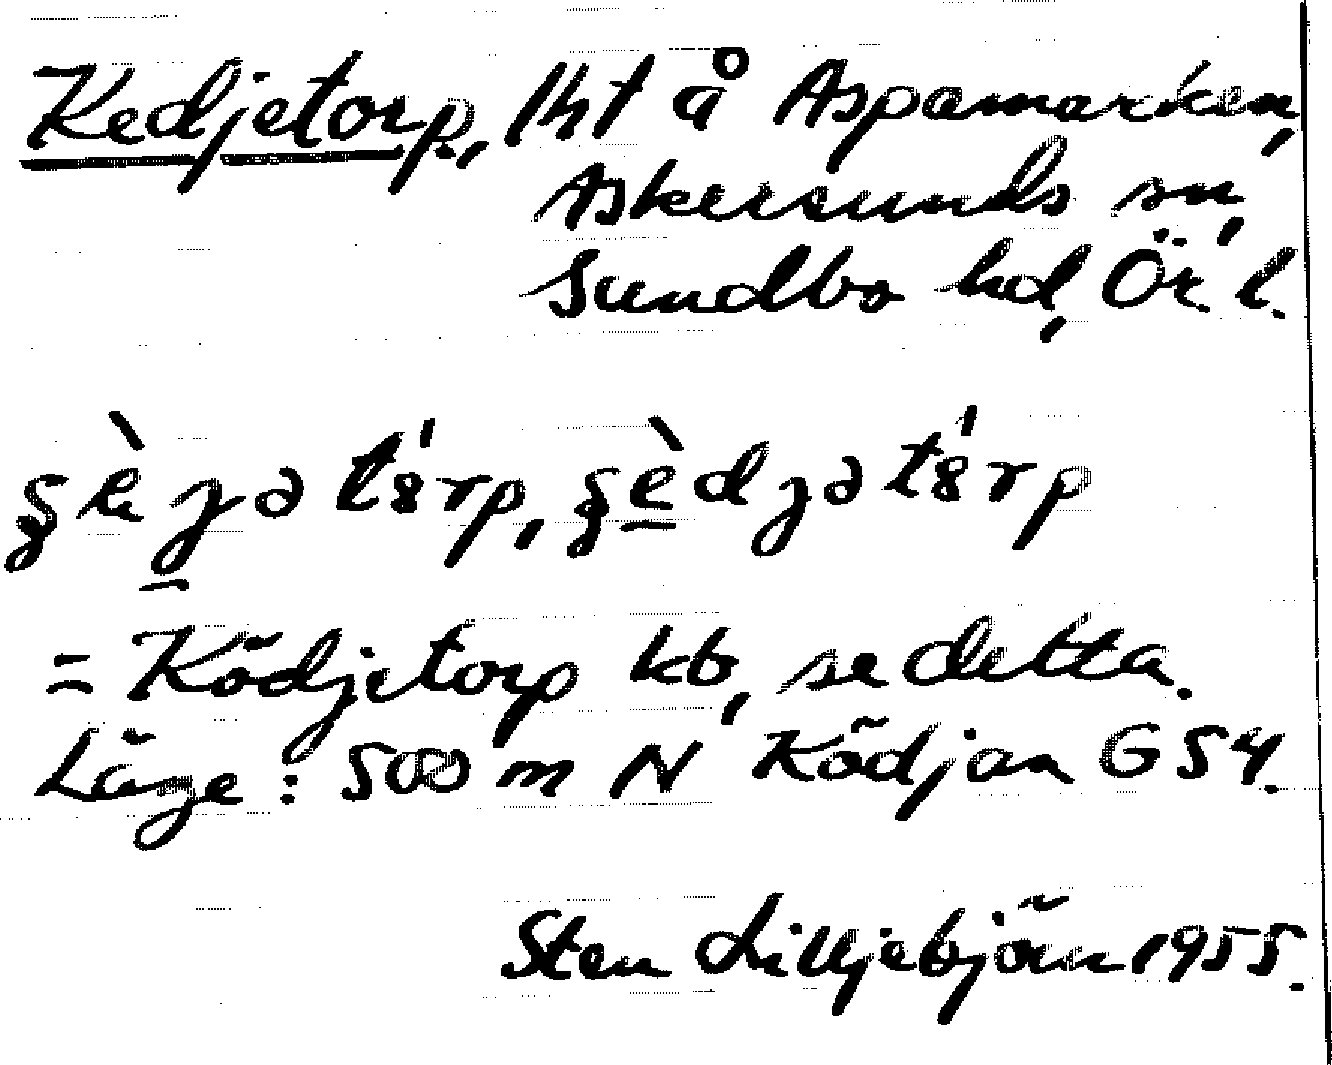 Kedjetorp, lht å Aspamarken,
Askersunds sn,
Sundbo hd, Ör. l.
= Ködjetorp kb, se detta.
Läge: 500 m N Ködjan G54.
Sten Lilljebjörn 1955.